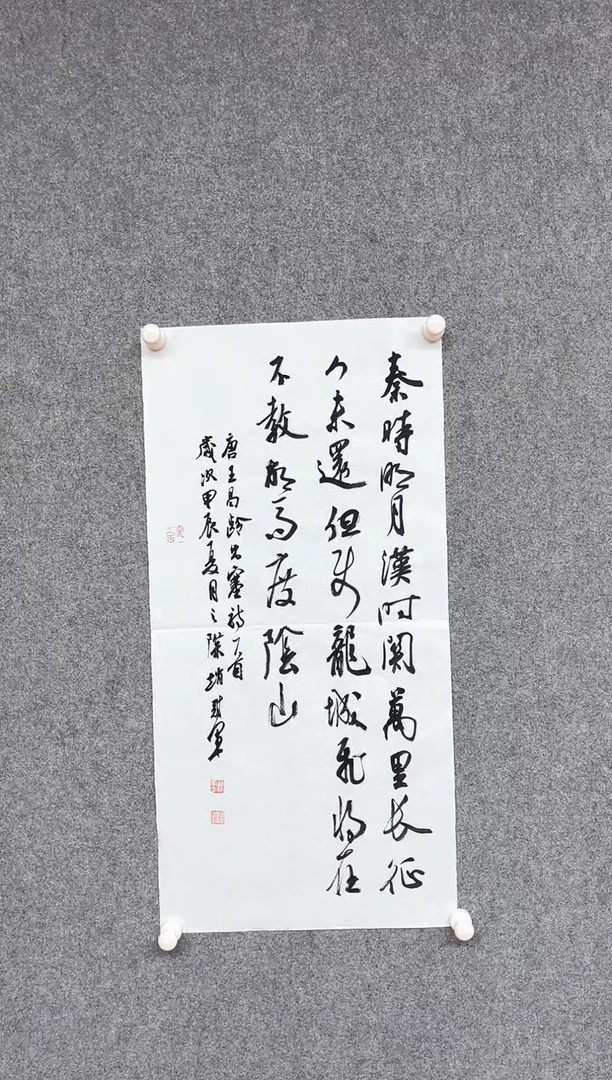 秦時明月漢时関萬里長征
人未還但使龍城飛將在
不教胡馬度陰山
唐王昌齡出塞詩一首
歲次甲辰夏月之際趙軍